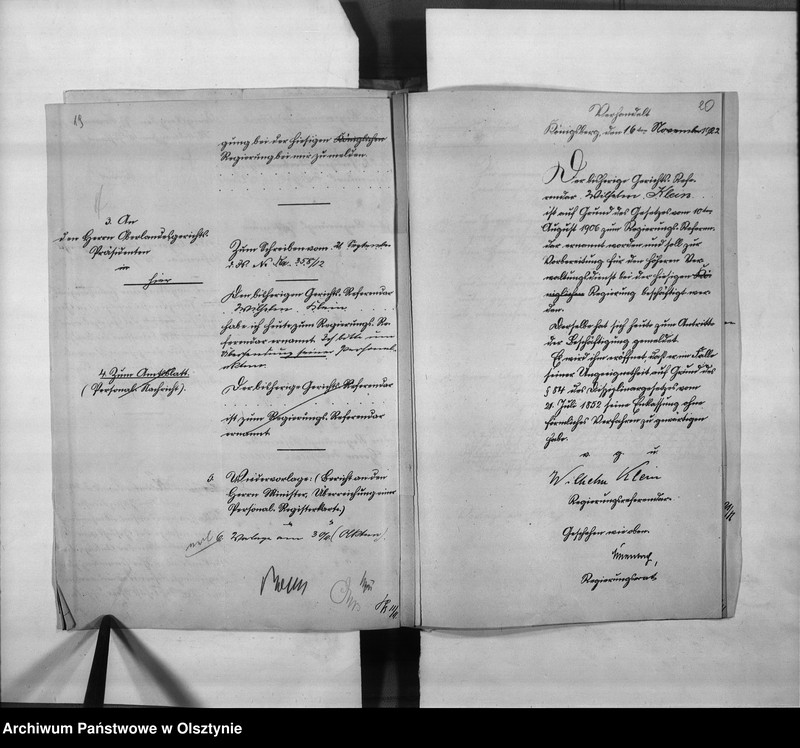 19
gung bei der hiesigen Königlichen
Regierung bei mir zu melden.
3. An
den Herrn Oberlandesgerichts-
Präsidenten
in
hier
Zum Schreiben vom
Den bisherigen Gerichts-Referendar
Wilhelm Klein
habe ich heute zum Regierungs-Re-
ferendar ernannt. Ich bitte um
Übersendung seiner Personal-
akten.
4. Zum Amtsblatt.
(Personal-Nachricht).
Der bisherige Gerichts-Referendar
ist zum Regierungs-Referendar
ernannt
5. Wiedervorlage: (Bericht an den
Herrn Minister, Überreichung einer
Personal-Registerkarte.)
6.
20
Verhandelt
Königsberg, den 16ten November 1922
Der bisherige Gerichts-Refe-
rendar Wilhelm Klein
ist auf Grund des Gesetzes vom 10ten
August 1906 zum Regierungs-Referen-
dar ernannt worden und soll zur
Vorbereitung für den höheren Ver-
waltungsdienst bei der hiesigen Kö-
niglichen Regierung beschäftigt wer-
den.
Derselbe hat sich heute zum Antritte
der Beschäftigung gemeldet.
Es wird ihm eröffnet, daß er im Falle
seiner Ungeeignetheit auf Grund des
§ 84 des Disziplinargesetzes vom
21. Juli 1852 seine Entlassung ohne
förmliches Verfahren zu gewärtigen
habe.
v. g. u.
Wilhelm Klein
Regierungsreferendar.
Geschehen wie oben.
Regierungsrat.
Archiwum Państwowe w Olsztynie